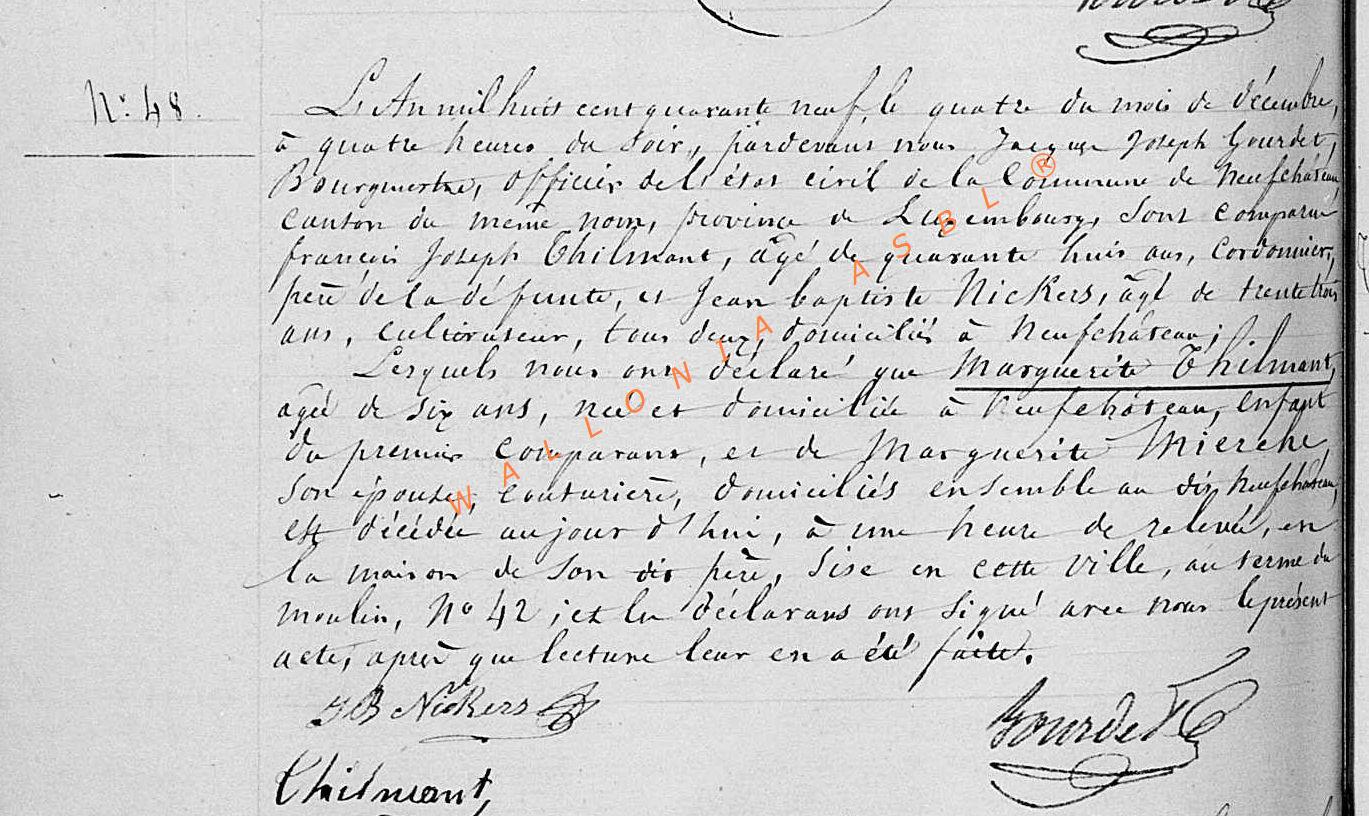 N° 48.
L'An mil huit cent quarante neuf, le quatre du mois de décembre,
à quatre heures du soir, pardevant nous Jacques Joseph Gourdet,
Bourgmestre, officier de l'état civil de la Commune de Neufchâteau,
canton du même nom, province de Luxembourg, sont comparus
françois Joseph Thilmant, âgé de quarante huit ans, cordonnier,
père de la défunte, et Jean baptiste Nickers, âgé de trente trois
ans, cultivateur, tous deux domiciliés à Neufchâteau;
Lesquels nous ont déclaré que Marguerite Thilmant,
agée de six ans, née et domiciliée à Neufchâteau, enfant
du premier comparant, et de Marguerite Mierche,
son épouse, couturière, domiciliés ensemble au dit Neufchâteau,
est décédée aujourd'hui, à une heure de relevée, en
la maison de son dit père, sise en cette ville, au terme du
moulin, N° 42; et les déclarans ont signé avec nous le présent
acte, après que lecture leur en a été faite.
JB Nickers
Gourdet
Thilmant,
WALLONIA ASBL ®